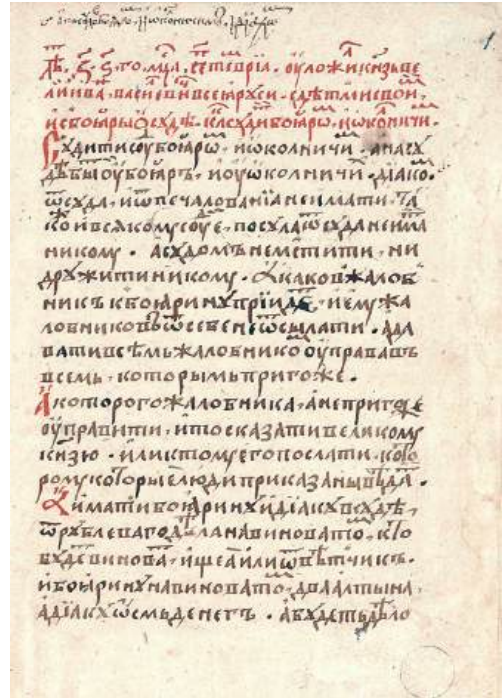 лѣ ҂з҃ ѕ҃ го мц҃а сеⷮтевріа. оуложи кн҃зь ве
ликиі ива васиевичь всеѧ рꙋси с дѣтми свои
и с боꙗры ѡ сꙋдѣ. каⷦ сꙋди боꙗроⷨ, и ѡколничиⷨ.
Сꙋдити сꙋ боꙗроⷨ, и ѡколничиⷨ. а на сꙋ
дѣ быти оу боꙗръ, и оу ѡколничиⷯ, діако.
ѿ сꙋда, и ѿ печалованіа не имати. та
кои всѧкомꙋ сꙋⷣе, посꙋла ѿ сꙋда не има
никомꙋ. а сꙋдомъ не мстити, ни
дрꙋжити никомꙋ. а каков жалоб
никъ к боꙗринꙋ прїидеⷮ, и емꙋ жа
лобниковъ ѿ себе не ѿсылати. а да
вати всѣмъ жалобникоⷨ оуправа въ
всемь, которымъ пригоже.
А которого жалобника, а не пригоже
оуправити, и то сказати великомꙋ
кн҃зю. или к томꙋ его послати, кото
ромꙋ которые люди приказаны вѣда.
А имати боꙗринꙋ и діакꙋ в сꙋдѣ,
ѿ рꙋблева го дѣла на виноватоⷨ, кто
бꙋдеⷮ виноваⷮ, ищеа или ѿвѣтчикъ.
и боꙗринꙋ на виноватоⷨ, два алтына,
а діакꙋ ѡсмь денегъ. а бꙋдеть дѣло